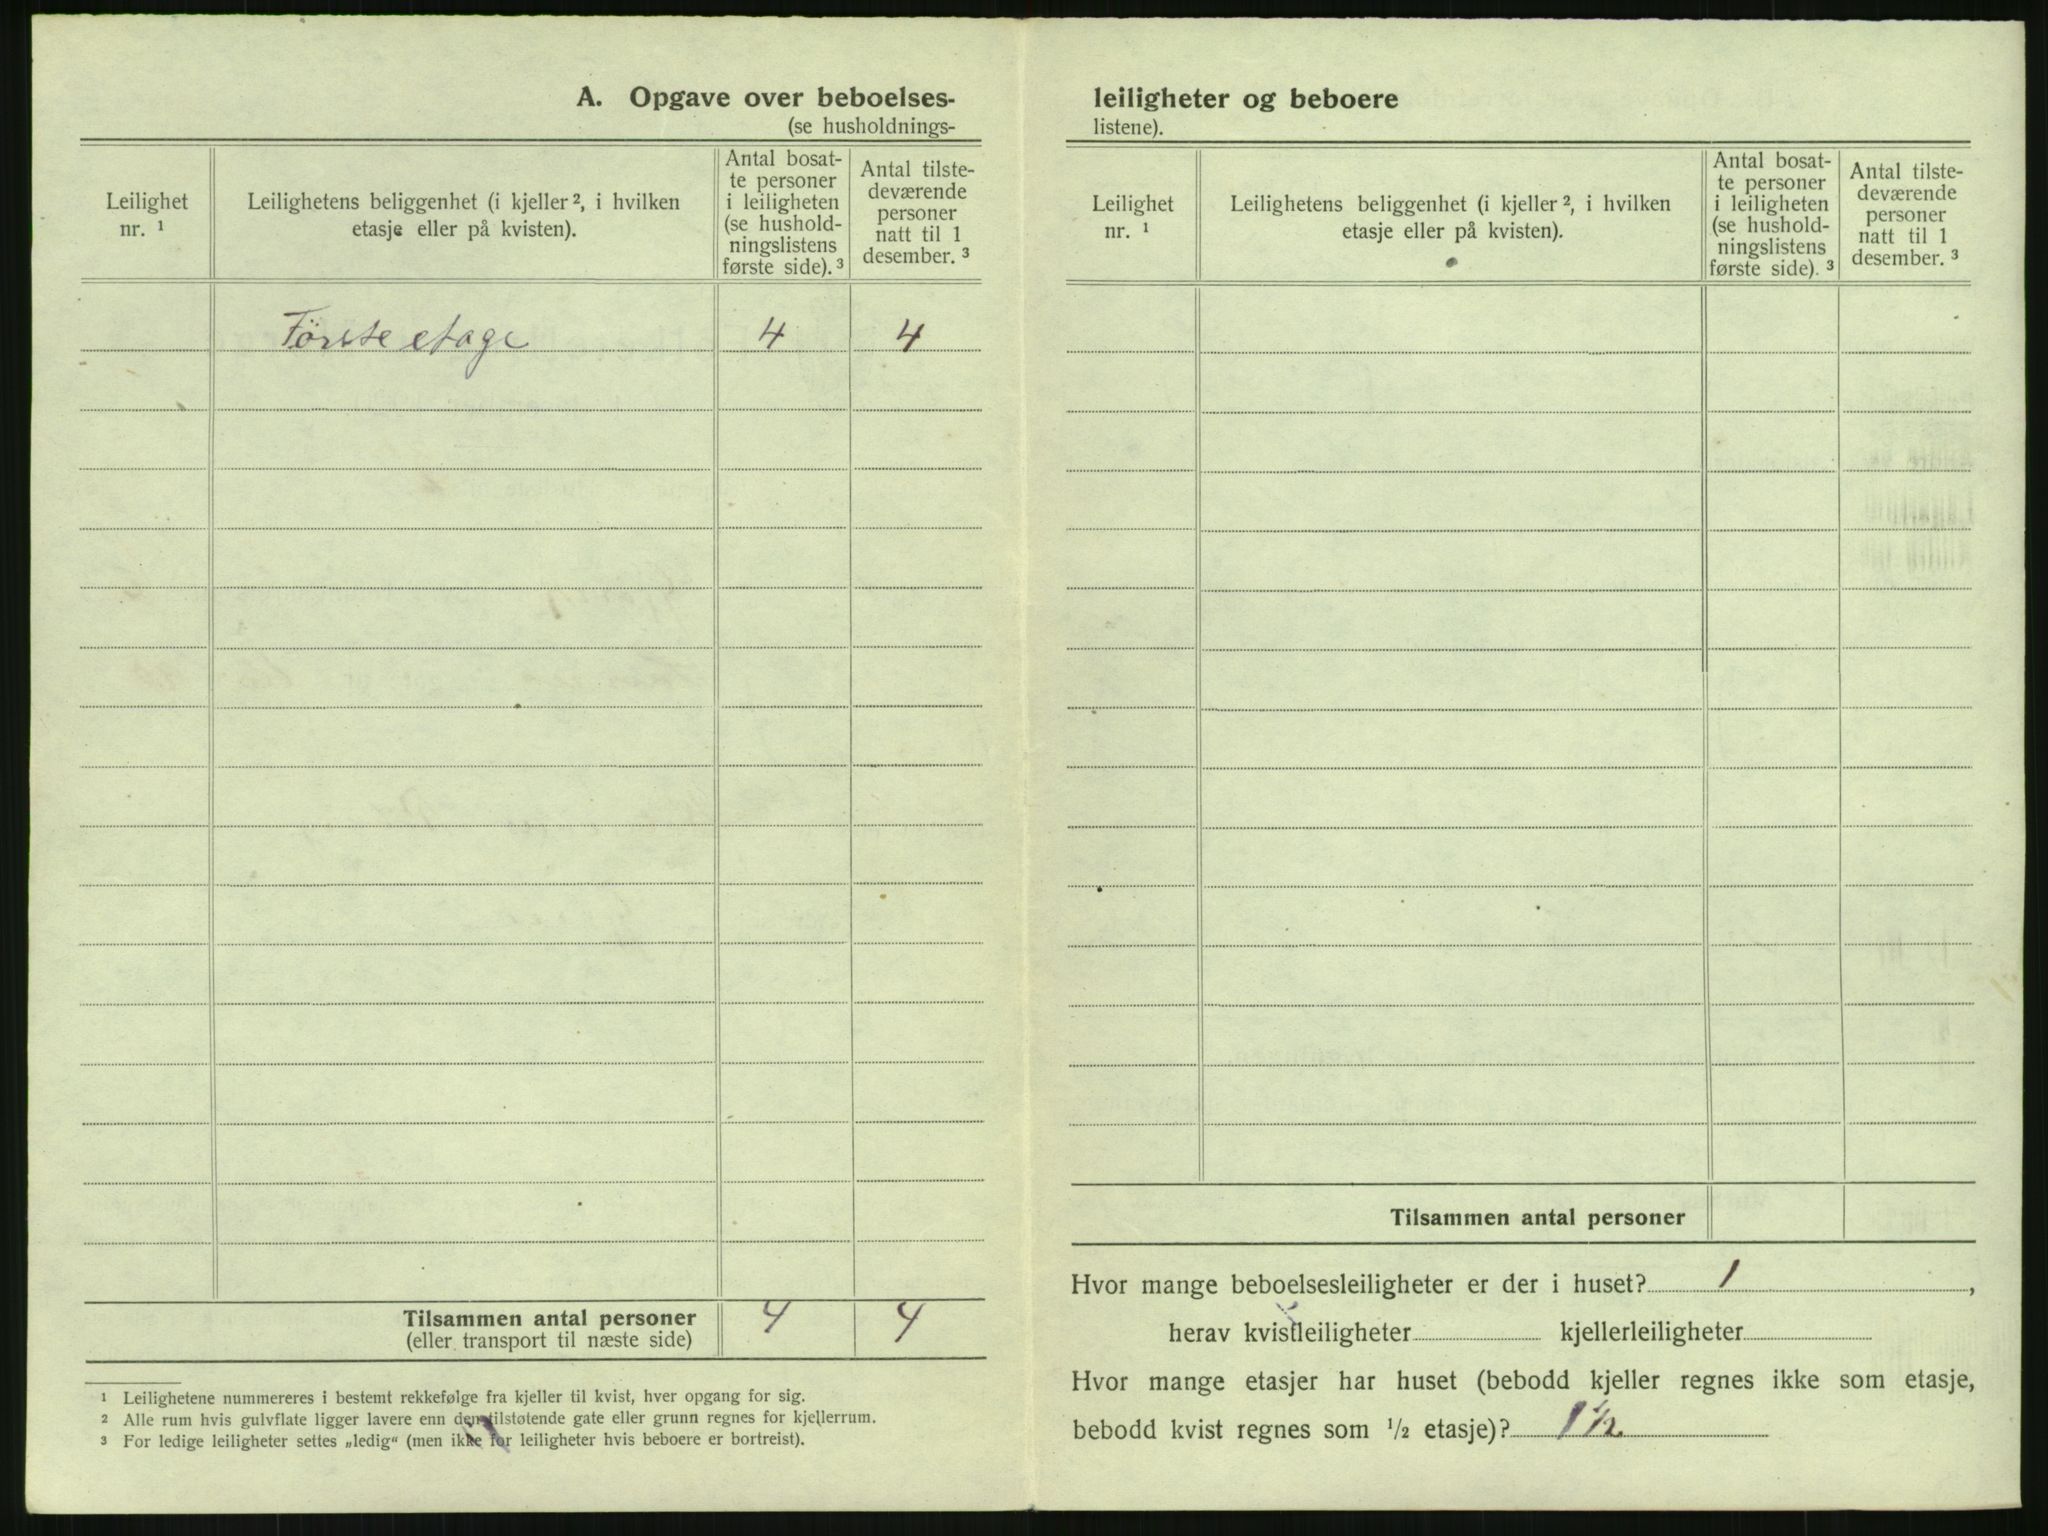 A. Opgave over beboelses-
(se husholdnings-
Leilighet
nr. ¹
Leilighetens beliggenhet (i kjeller ², i hvilken
etasje eller på kvisten).
Antal bosat-
te personer
i leiligheten
(se hushold-
ningslistens
første side). ³
Antal tilste-
deværende
personer
natt til 1
desember. ³
Første etage 4 4
Tilsammen antal personer 4 4
(eller transport til næste side)
¹ Leilighetene nummereres i bestemt rekkefølge fra kjeller til kvist, hver opgang for sig.
² Alle rum hvis gulvflate ligger lavere enn den tilstøtende gate eller grunn regnes for kjellerrum.
³ For ledige leiligheter settes „ledig“ (men ikke for leiligheter hvis beboere er bortreist).
leiligheter og beboere
listene).
Leilighet
nr. ¹
Leilighetens beliggenhet (i kjeller ², i hvilken
etasje eller på kvisten).
Antal bosat-
te personer
i leiligheten
(se hushold-
ningslistens
første side). ³
Antal tilste-
deværende
personer
natt til 1
desember. ³
Tilsammen antal personer
Hvor mange beboelsesleiligheter er der i huset? 1,
herav kvistleiligheter kjellerleiligheter
Hvor mange etasjer har huset (bebodd kjeller regnes ikke som etasje,
bebodd kvist regnes som ½ etasje)? 1 ½